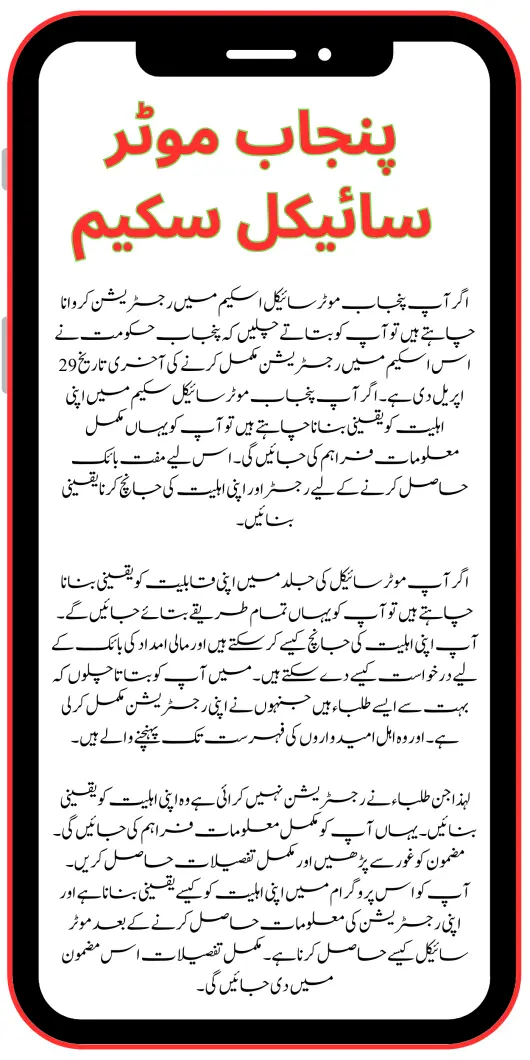 پنجاب موٹر
سائیکل سکیم
اگر آپ پنجاب موٹر سائیکل اسکیم میں رجسٹریشن کروانا
چاہتے ہیں تو آپ کو بتاتے چلیں کہ پنجاب حکومت نے
اس اسکیم میں رجسٹریشن مکمل کرنے کی آخری تاریخ 29
اپریل دی ہے۔ اگر آپ پنجاب موٹر سائیکل سکیم میں اپنی
اہلیت کو یقینی بنانا چاہتے ہیں تو آپ کو یہاں مکمل
معلومات فراہم کی جائیں گی۔ اس لیے مفت بائک
حاصل کرنے کے لیے رجسٹر اور اپنی اہلیت کی جانچ کرنا یقینی
بنائیں۔
اگر آپ موٹر سائیکل کی جلد میں اپنی قابلیت کو یقینی بنانا
چاہتے ہیں تو آپ کو یہاں تمام طریقے بتائے جائیں گے۔
آپ اپنی اہلیت کی جانچ کیسے کر سکتے ہیں اور مالی امداد کی بائک کے
لیے درخواست کیسے دے سکتے ہیں۔ میں آپ کو بتاتا چلوں کہ
بہت سے ایسے طلباء ہیں جنہوں نے اپنی رجسٹریشن مکمل کرلی
ہے۔ اور وہ اہل امیدواروں کی فہرست تک پہنچنے والے ہیں۔
لہذا جن طلباء نے رجسٹریشن نہیں کرائی ہے وہ اپنی اہلیت کو یقینی
بنائیں۔ یہاں آپ کو مکمل معلومات فراہم کی جائیں گی۔
مضمون کو غور سے پڑھیں اور مکمل تفصیلات حاصل کریں۔
آپ کو اس پروگرام میں اپنی اہلیت کو کیسے یقینی بنانا ہے اور
اپنی رجسٹریشن کی معلومات حاصل کرنے کے بعد موٹر
سائیکل کیسے حاصل کرنا ہے۔ مکمل تفصیلات اس مضمون
میں دی جائیں گی۔